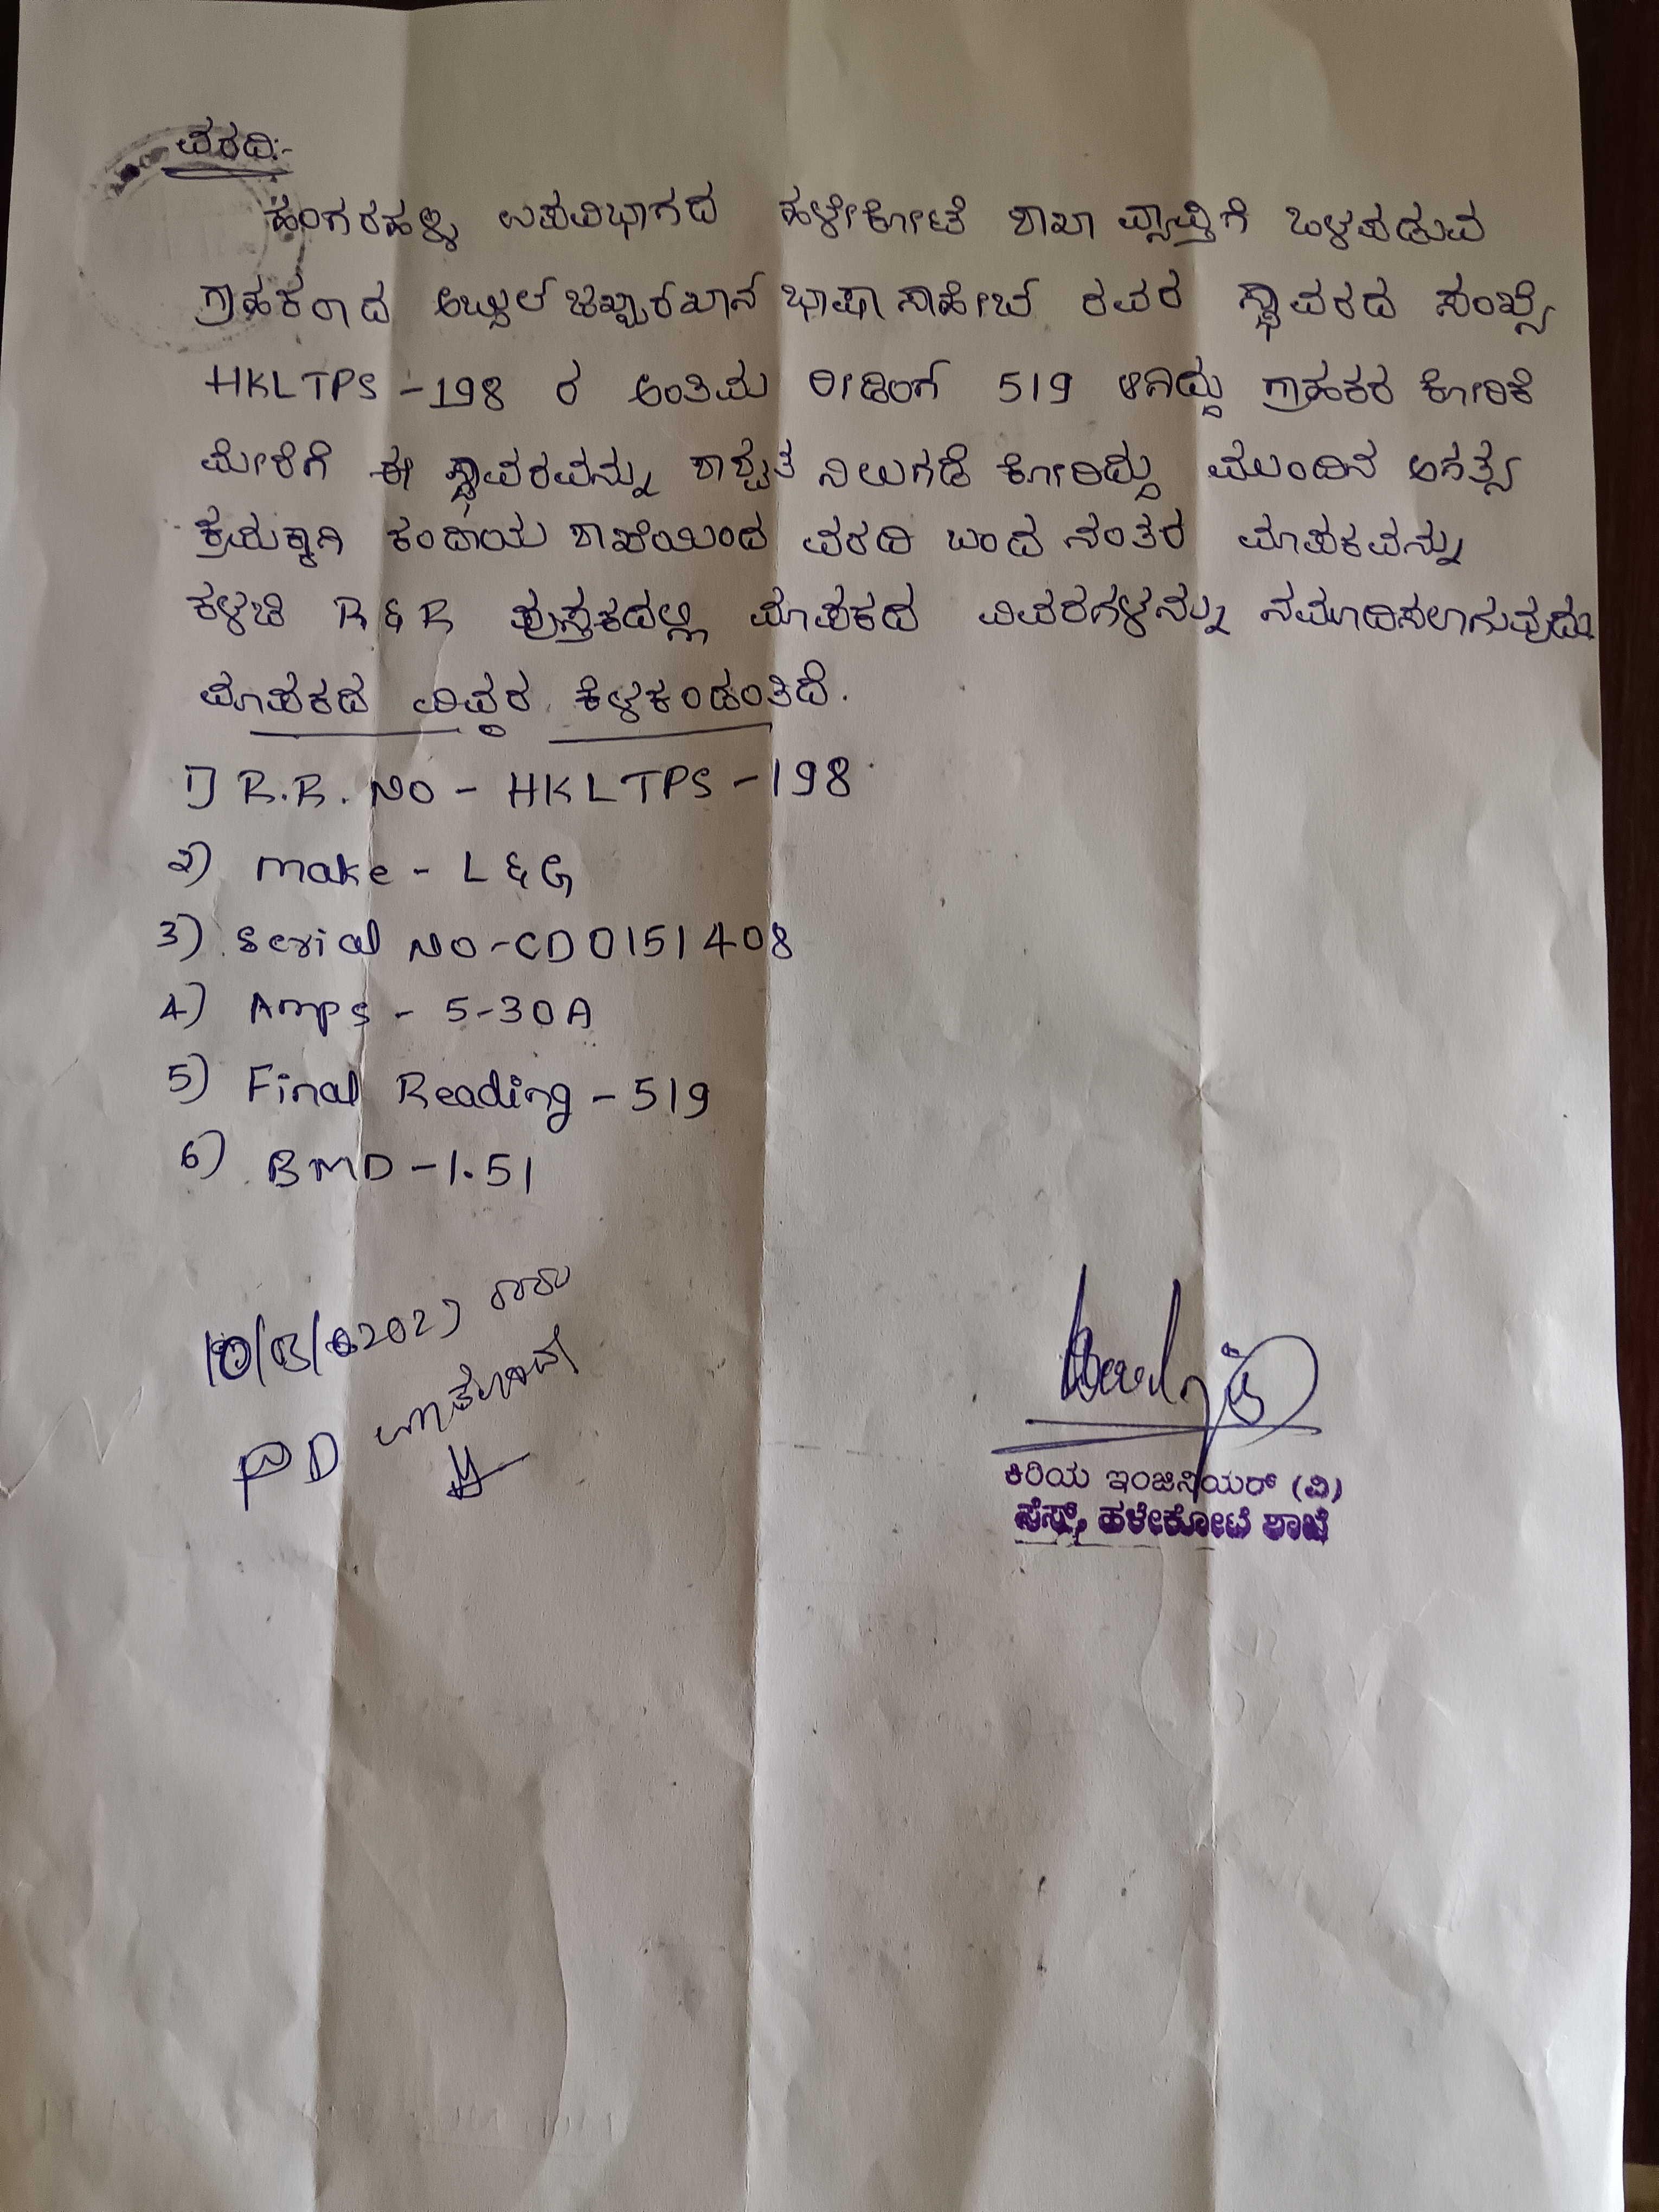 ವರದಿ:-
ಹಂಗರಹಳ್ಳಿ ಉಪವಿಭಾಗದ ಹಳೇಕೋಟೆ ಶಾಖಾ ವ್ಯಾಪ್ತಿಗೆ ಒಳಪಡುವ
ಗ್ರಾಹಕರಾದ ಅಬ್ದುಲ್ ಜಬ್ಬಾರಖಾನ್ ಭಾಷಾ ಸಾಹೇಬ್ ರವರ ಸ್ಥಾವರದ ಸಂಖ್ಯೆ
HKLTPS-198 ರ ಅಂತಿಮ ರೀಡಿಂಗ್ 519 ಆಗಿದ್ದು ಗ್ರಾಹಕರ ಕೋರಿಕೆ
ಮೇರೆಗೆ ಈ ಸ್ಥಾವರವನ್ನು ಶಾಶ್ವತ ನಿಲುಗಡೆ ಕೋರಿದ್ದು ಮುಂದಿನ ಅಗತ್ಯ
ಕ್ರಮಕ್ಕಾಗಿ ಕಂದಾಯ ಶಾಖೆಯಿಂದ ವರದಿ ಬಂದ ನಂತರ ಮಾಪಕವನ್ನು
ಕಳಚಿ R&R ಪುಸ್ತಕದಲ್ಲಿ ಮಾಪಕದ ವಿವರಗಳನ್ನು ನಮೂದಿಸಲಾಗುವುದು
ಮಾಪಕದ ವಿವರ ಕೆಳಕಂಡಂತಿದೆ.
1) R.R. NO - HKLTPS-198
2) Make - L&G
3) Serial NO-CD0151408
4) Amps - 5-30A
5) Final Reading-519
6) BMD-1.51
PD
ಕಿರಿಯ ಇಂಜಿನಿಯರ್ (ವಿ)
ಸೆಸ್ಕ್, ಹಳೇಕೋಟೆ ಶಾಖೆ